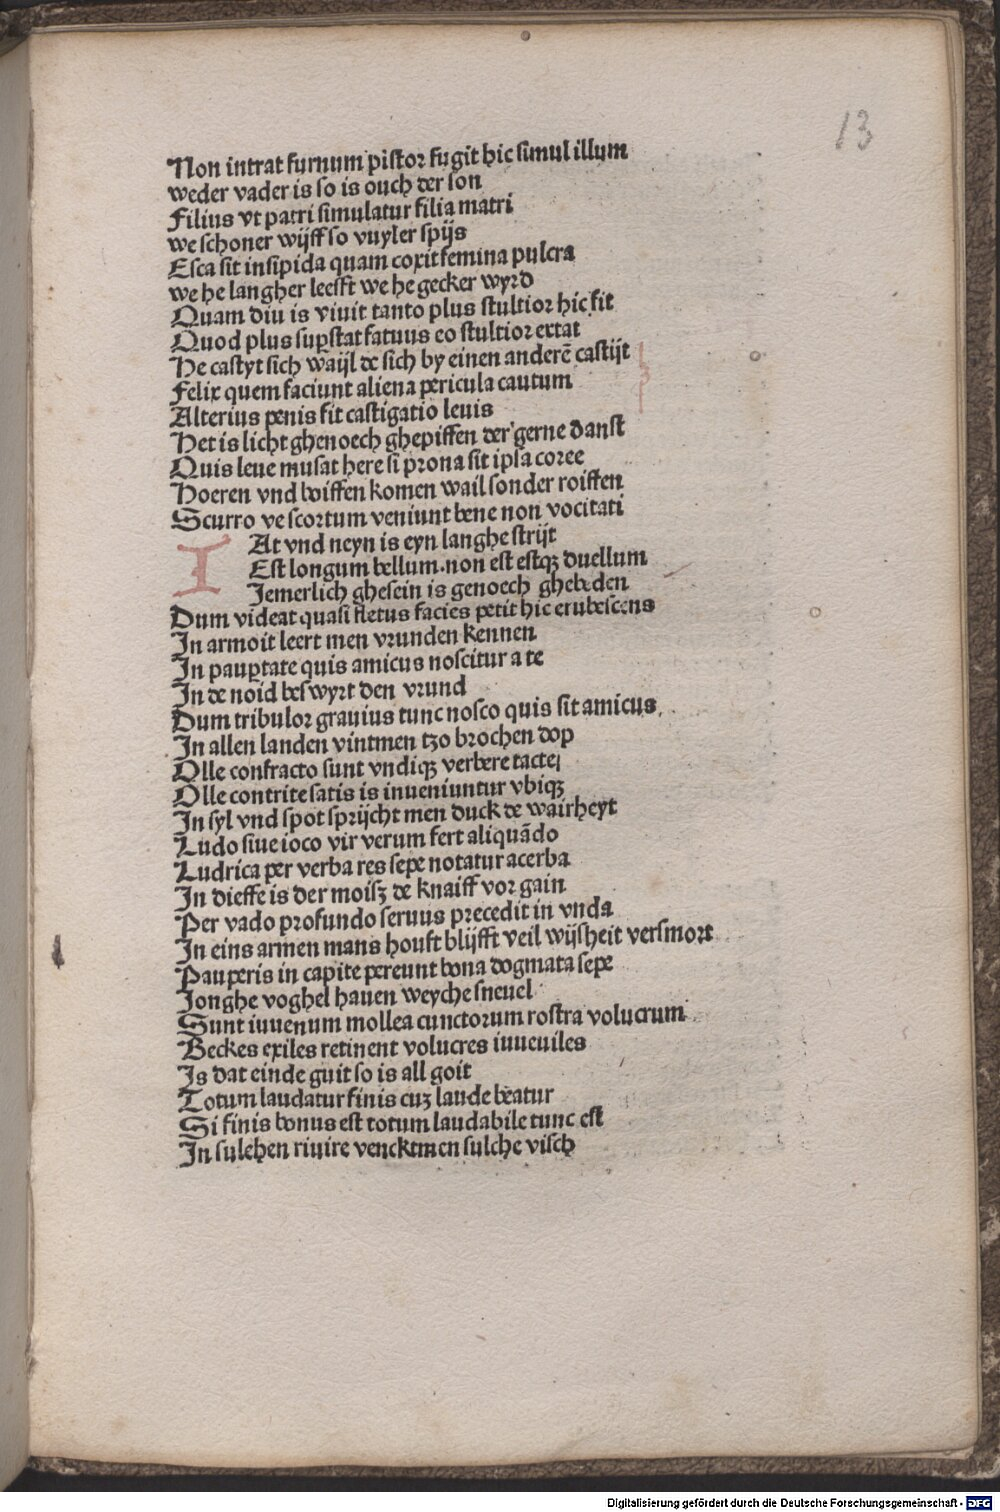 13
Non intrat furnum pistor fugit hic simul illum
weder vader is so is ouch der son
Filius vt patri simulatur filia matri
we schoner wijff so vuyler spijs
Esca sit insipida quam coxit femina pulcra
we he langher leefft we he gecker wyrd
Quam diu is viuit tanto plus stultior hic fit
Quod plus sup̱stat fatuus eo stultior extat
He castyt sich waijl de sich by einen anderē castijt
Felix quem faciunt aliena pericula cautum
Alterius penis fit castigatio leuis
Het is licht ghenoech ghepiffen der gerne danst
Quis leue musat here si prona sit ipsa coree
Hoeren vnd boiffen komen wail sonder roiffen
Scurro ve scortum veniunt bene non vocitati
I At vnd neyn is eyn langhe strijt
Est longum bellum·non est estqꝫ duellum
Iemerlich ghesein is genoech ghebeden
Dum videat quasi fletus facies petit hic erubescens
In armoit leert men vrunden kennen
In paup̱tate quis amicus noscitur a te
In de noid beswyrt den vrund
Dum tribulor grauius tunc nosco quis sit amicus
In allen landen vintmen tzo brochen dop
Olle confracto sunt vndiqꝫ verbere tacte
Olle contrite satis is inueniuntur vbiqꝫ
In syl vnd spot sprijcht men duck de wairheyt
Ludo siue ioco vir verum fert aliquādo
Ludrica per verba res sepe notatur acerba
In dieffe is der moisꝫ de knaiff vor gain
Per vado profundo seruus precedit in vnda
In eins armen mans houft blijfft veil wijsheit versmort
Pauperis in capite pereunt bona dogmata sepe
Ionghe voghel hauen weyche sneuel
Sunt iuuenum mollea cunctorum rostra volucrum
Beckes exiles retinent volucres iuueuiles
Is dat einde guit so is all goit
Totum laudatur finis cuꝫ laude beatur
Si finis bonus est totum laudabile tunc est
In sulehen riuire vencktmen sulche visch
Digitalisierung gefördert durch die Deutsche Forschungsgemeinschaft - DFG